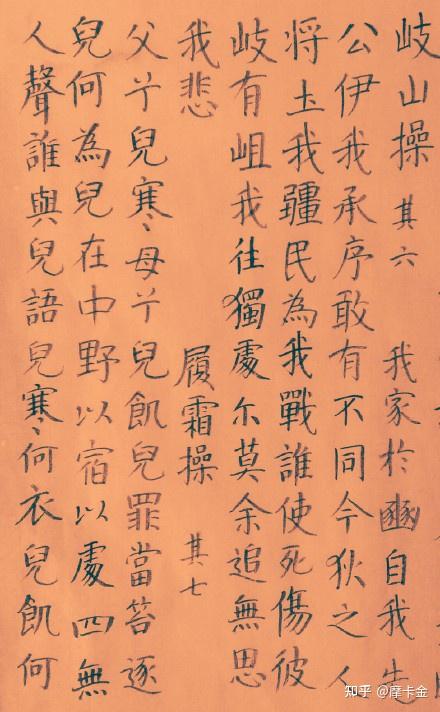 岐山操 其六 我家於豳自我先
公伊我承序敢有不同今狄之人
将土我疆民為我戰誰使死傷彼
岐有岨我往獨處尒莫余追無思
我悲 履霜操 其七
父兮兒寒母兮兒飢兒罪當笞逐
兒何為兒在中野以宿以處四無
人聲誰與兒語兒寒何衣兒飢何
知乎 @摩卡金